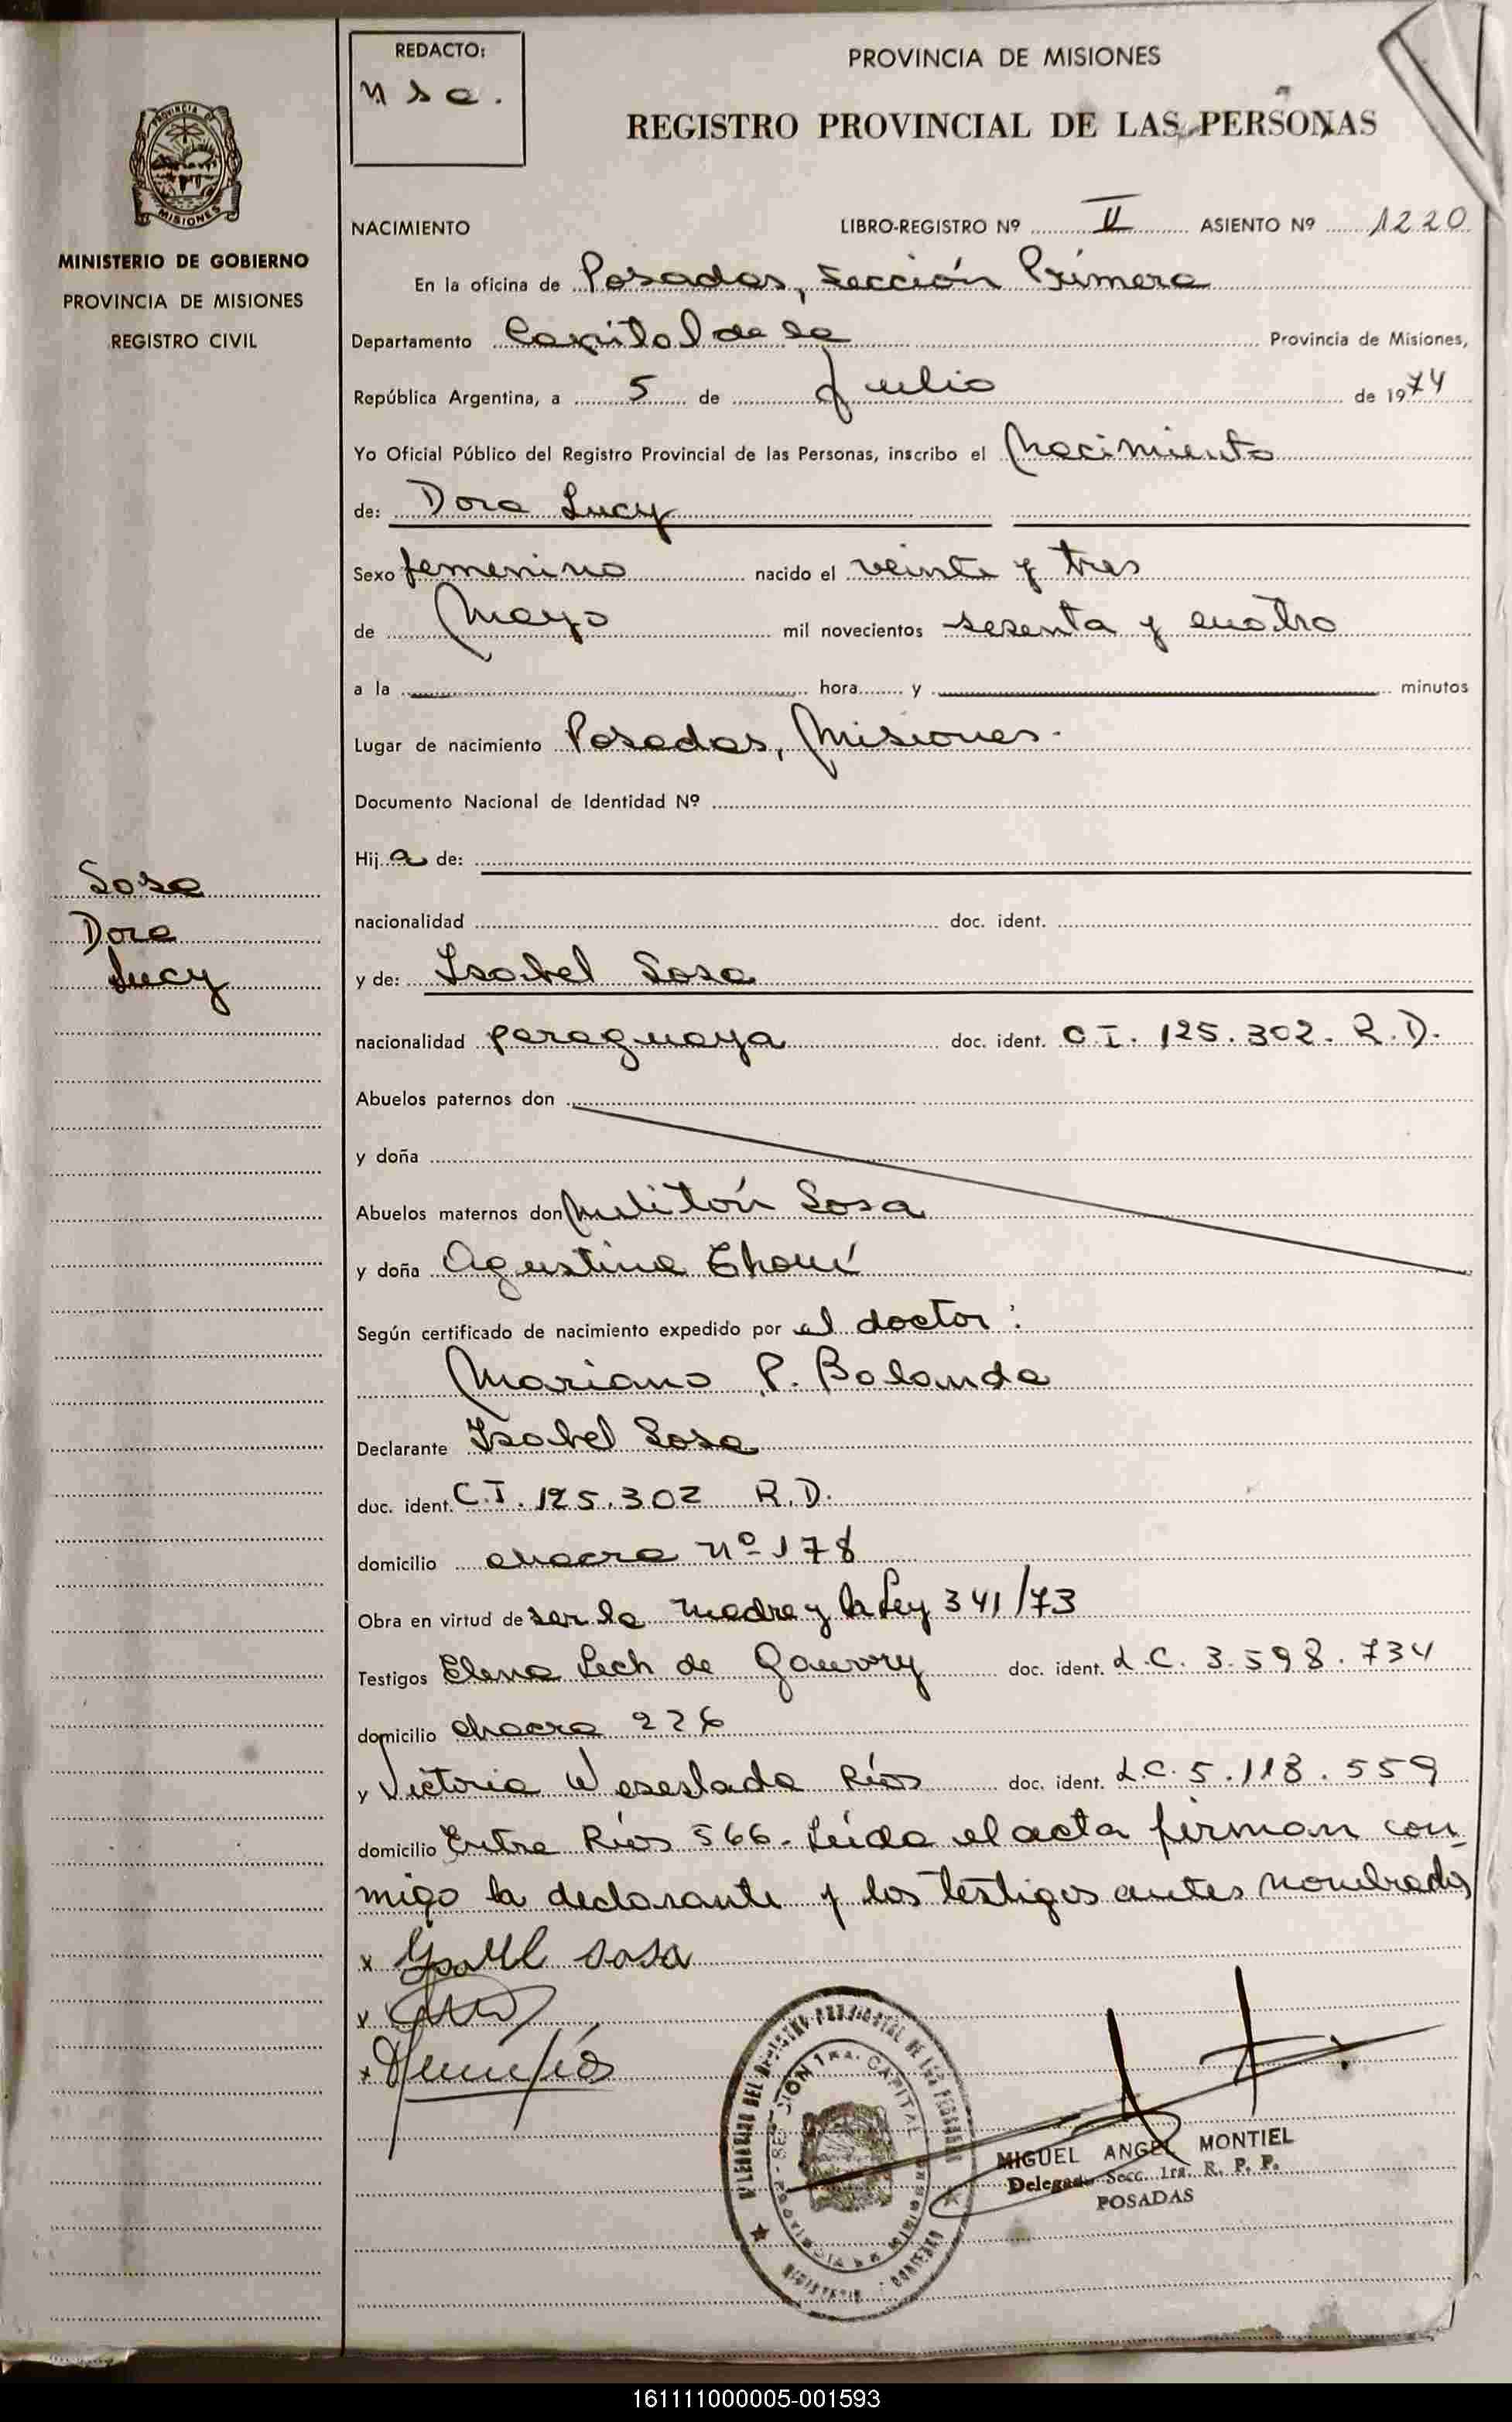 REDACTO:
PROVINCIA DE MISIONES
REGISTRO PROVINCIAL DE LAS PERSONAS
PROVINCIA DE
MISIONES
MINISTERIO DE GOBIERNO
PROVINCIA DE MISIONES
REGISTRO CIVIL
NACIMIENTO LIBRO-REGISTRO Nº II ASIENTO Nº 1220
En la oficina de Posadas, Sección Primera
Departamento Capital de la Provincia de Misiones,
República Argentina, a 5 de Julio de 1974
Yo Oficial Público del Registro Provincial de las Personas, inscribo el Nacimiento
de: Dora Lucy
Sexo femenino nacido el veinte y tres
de Mayo mil novecientos sesenta y cuatro
a la hora y minutos
Lugar de nacimiento Posadas, Misiones.
Documento Nacional de Identidad Nº
Hija de:
Sosa
Dora
Lucy
nacionalidad doc. ident.
y de: Isabel Sosa
nacionalidad paraguaya doc. ident. C.I. 125.302. R.D.
Abuelos paternos don
y doña
Abuelos maternos don Melitón Sosa
y doña Agustina
Según certificado de nacimiento expedido por el doctor:
Mariano P. Bolanda
Declarante Isabel Sosa
doc. ident. C.I. 125.302 R.D.
domicilio chacra nº 178
Obra en virtud de ser la madre y la Ley 341/73
Testigos Elena Lech de doc. ident. L.C. 3.598.734
domicilio chacra 226
y Victoria Weseslada Ríos doc. ident. L.C. 5.118.559
domicilio Entre Ríos 566. Leída el acta firman con-
migo la declarante y los testigos antes nombrados
x Ysabel sosa
x
x
SECCION 1RA. CAPITAL
MIGUEL ANGEL MONTIEL
Delegado Secc. 1ra. R. P. P.
POSADAS
161111000005-001593